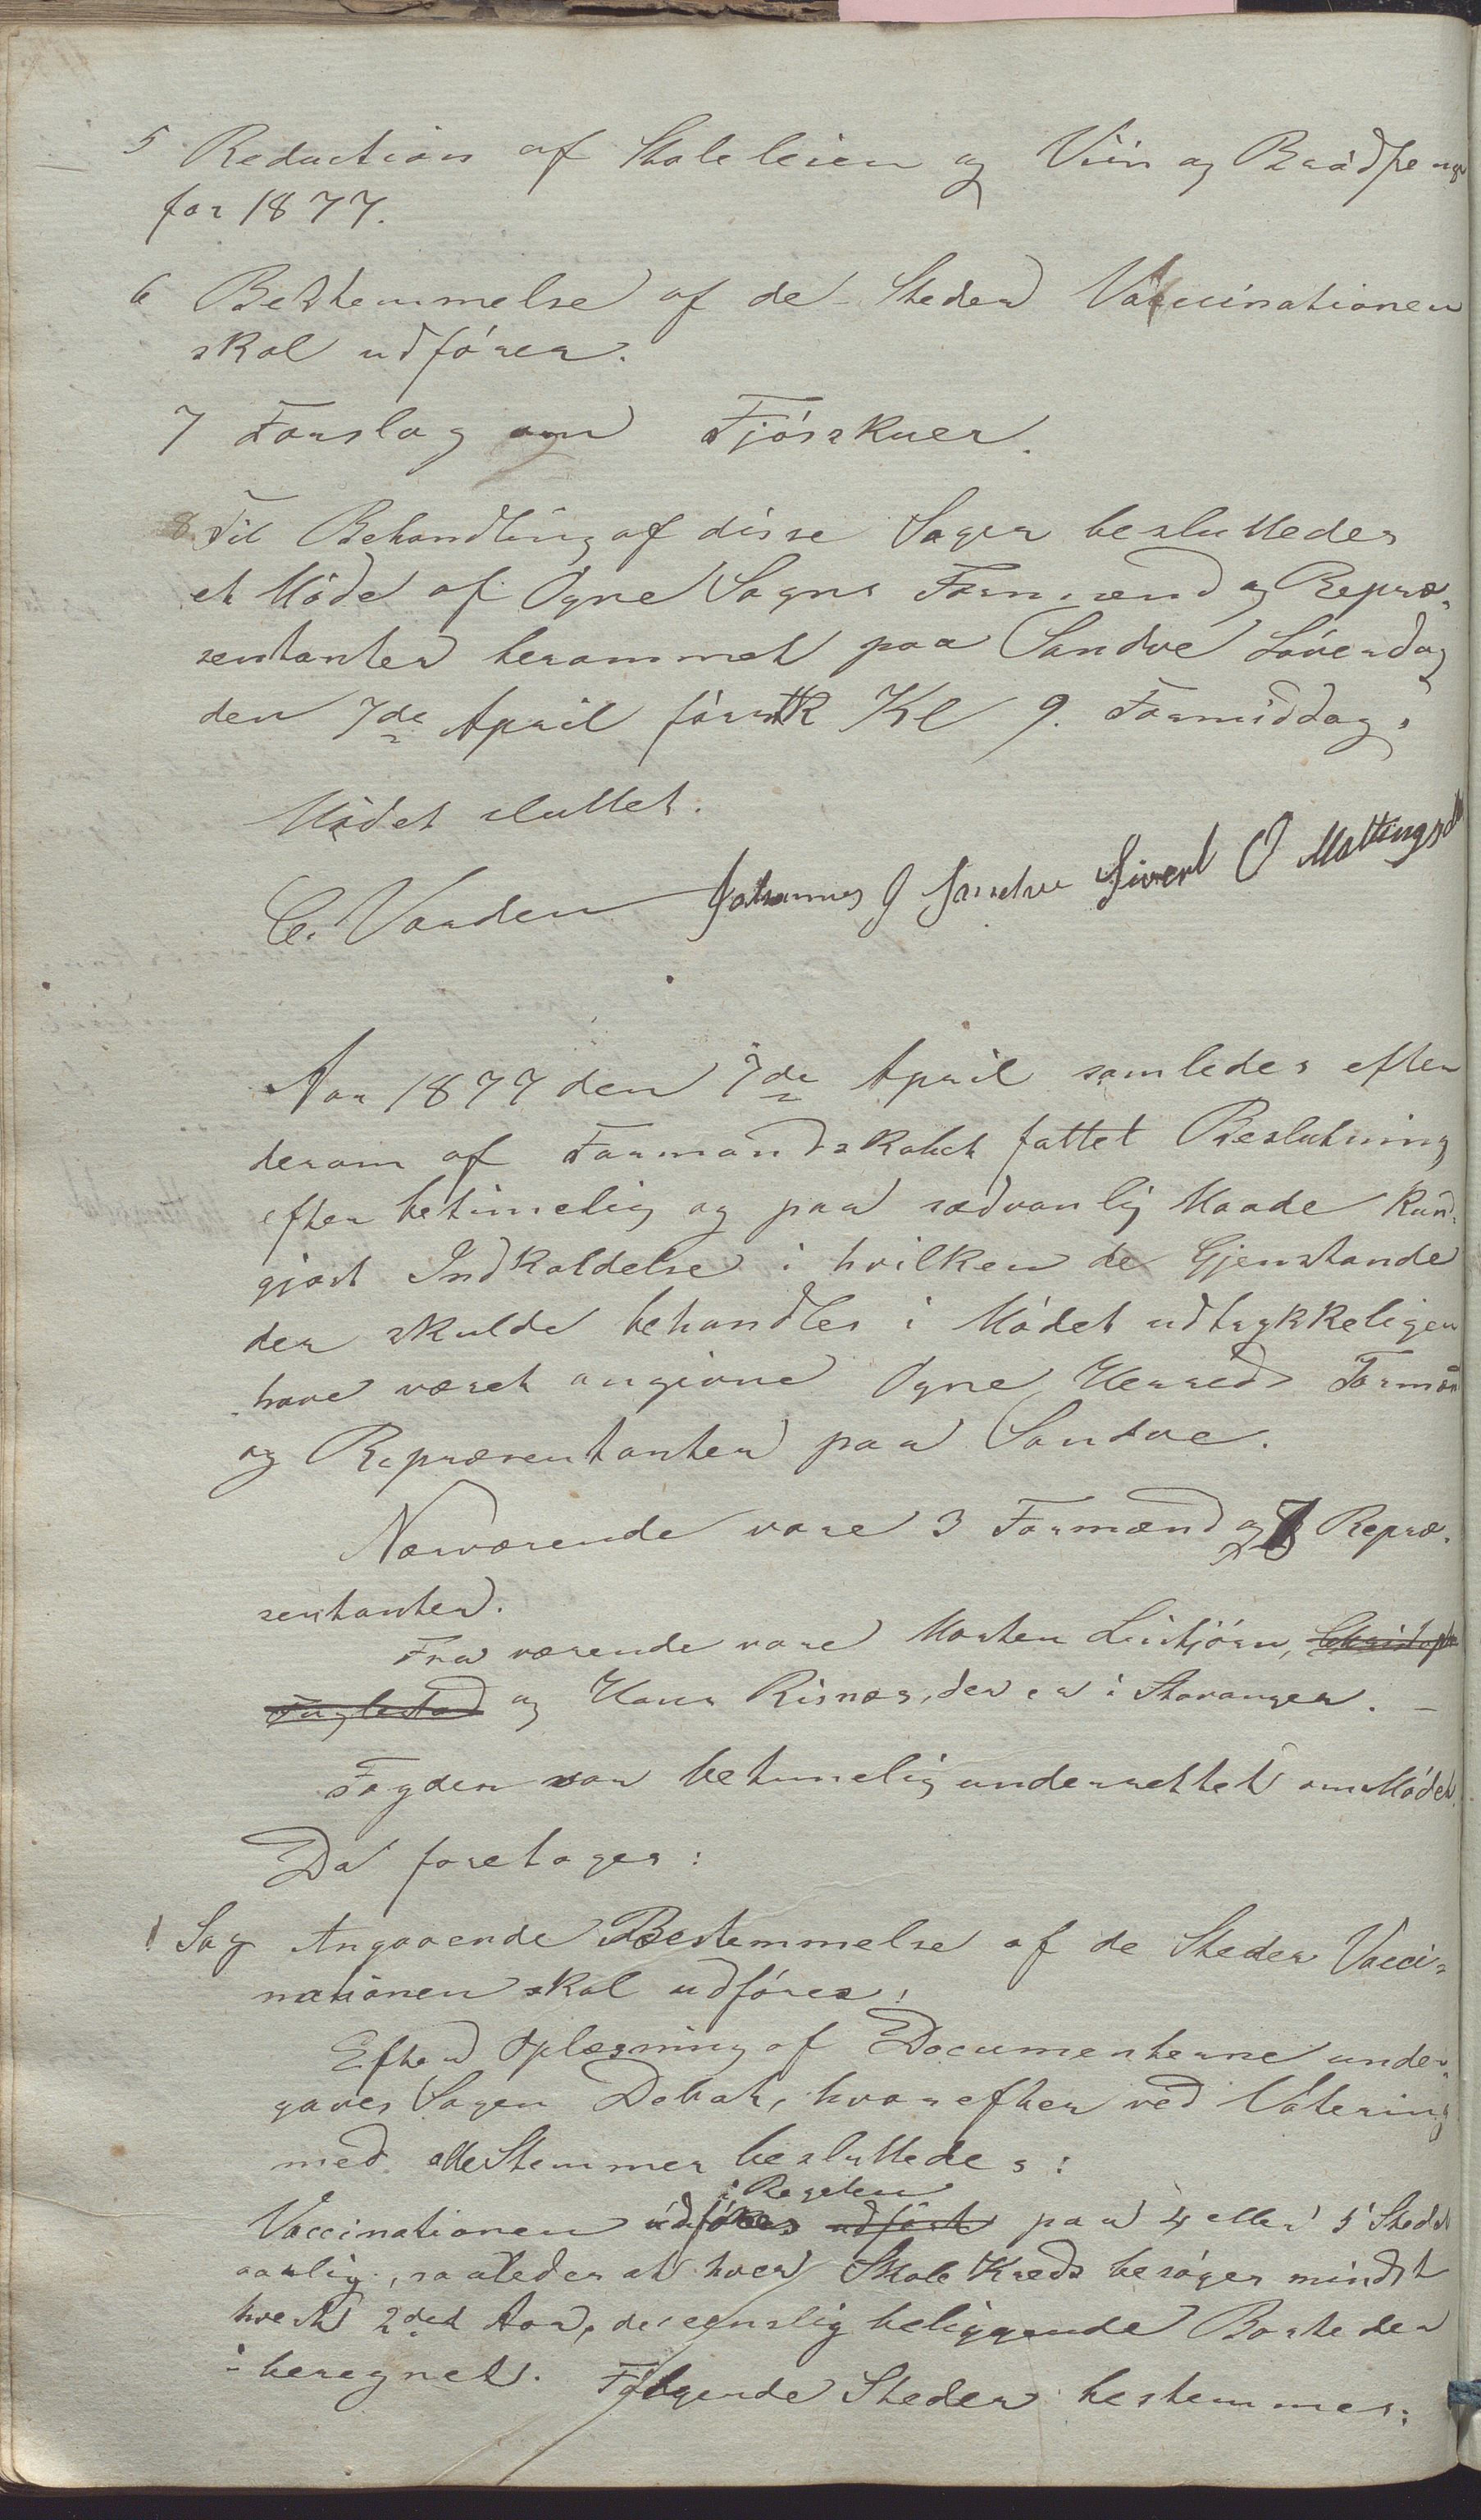 5 Reduction af Skoleleien og Viin og Brødpenge
for 1877.
6 Bestemmelse af de Steder Vaccinationen
skal udføres.
7 Forslag om Fjøsskuer.
8. Til Behandling af disse Sager besluttedes
et Møde af Ogne Sogns Formænd og Repræ-
sentanter berammet paa Sandve Løverdag
den 7de April førstk Kl 9. Formiddag.
Mødet sluttet.
C. Varden Johannes J Sandve Sivert O Mattingsdal
Aar 1877 den 7de April samledes efter
derom af Formandskabet fattet Beslutning
efter betimelig og paa sædvanlig Maade kund-
gjort Indkaldelse i hvilken de Gjenstande
der skulde behandles i Mødet udtrykkeligen
have været angivne Ogne Herreds Formæn
og Repræsentanter paa Sandve.
Nærværende vare 3 Formænd og 7 Repræ-
sentanter.
Fraværende vare Morten Listjørn, Christopher
Fuglestad og Hans Risnes, der er i Stavanger. -
Fogden var betimelig underrettet om Mødet.
Da foretages:
1 Sag Angaaende Bestemmelse af de Steder Vacci-
nationen skal udføres.
Efter Oplæsning af Documenterne under-
gaves Sagen Debat, hvorefter ved Votering
med alle Stemmer besluttedes:
i Regelen
Vaccinationen udføres udført paa 4 eller 5 Steder
aarlig, saaledes at hver Skole Kreds besøges mindst
hvert 2det Aar, de eenslig beliggende Bosteder
iberegnet. Følgende Steder bestemmes: